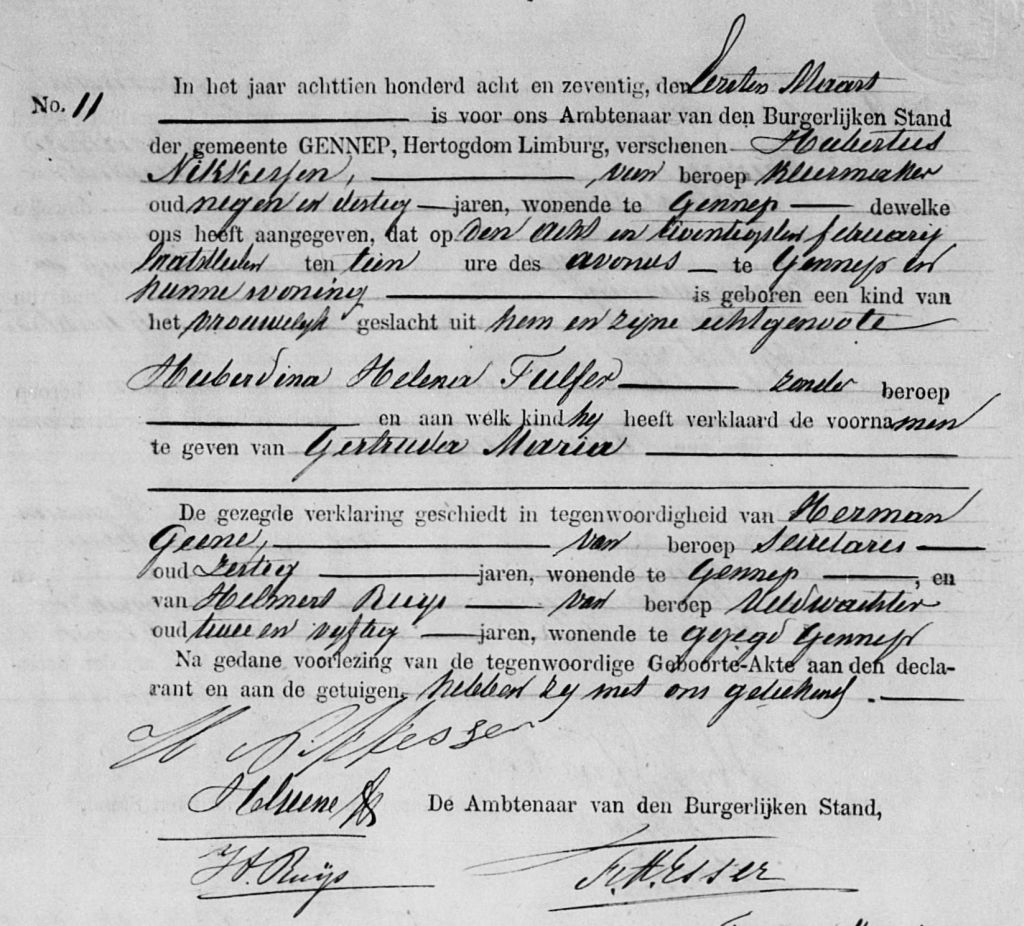 No. 11
In het jaar achttien honderd acht en zeventig, den eersten Maart
is voor ons Ambtenaar van den Burgerlijken Stand
der gemeente GENNEP, Hertogdom Limburg, verschenen Hubertus
Nikkessen, van beroep kleermaker
oud negen en dertig jaren, wonende te Gennep dewelke
ons heeft aangegeven, dat op den acht en twentigsten februarij
laatstleden ten tien ure des avonds te Gennep in
hunne woning is geboren een kind van
het vrouwelijk geslacht uit hem en zijne echtgenoote
Huberdina Helena zonder beroep
en aan welk kind hij heeft verklaard de voornamen
te geven van Gertruda Maria
De gezegde verklaring geschiedt in tegenwoordigheid van Herman
Geene, van beroep Secretaris
oud zestig jaren, wonende te Gennep, en
van Helmert Ruys van beroep veldwachter
oud twee en vijftig jaren, wonende te gezegd Gennep
Na gedane voorlezing van de tegenwoordige Geboorte-Akte aan den decla-
rant en aan de getuigen, hebben zij met ons geteekend.
De Ambtenaar van den Burgerlijken Stand,
H. Ruijs
F. H. Esser